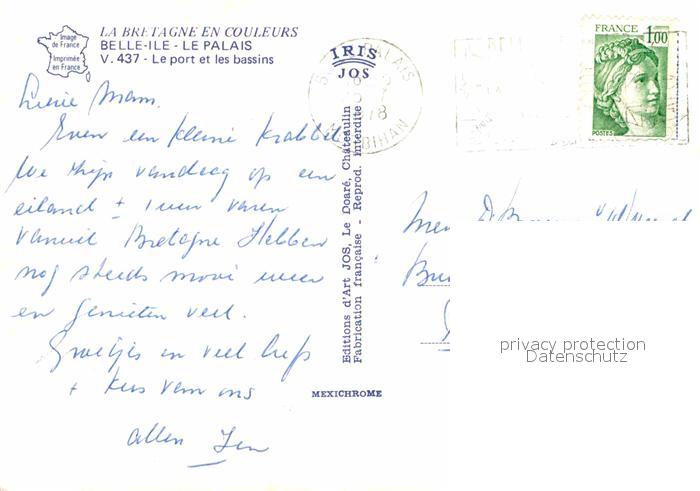 LA BRETAGNE EN COULEURS
BELLE-ILE - LE PALAIS
V. 437 - Le port et les bassins
Image de France
Imprimée en France
IRIS
JOS
PALAIS
78
MORBIHAN
FRANCE
1,00
POSTES
Lieve Mam.
Even een kleine krabbel
We zijn vandaag op een
eiland ± 1 uur varen
vanuit Bretagne Hebben
nog steeds mooi weer
en genieten veel.
Groetjes en veel liefs
+ kus van ons
allen
Editions d'Art JOS, Le Doaré, Châteaulin
Fabrication française - Reprod. interdite
MEXICHROME
privacy protection
Datenschutz